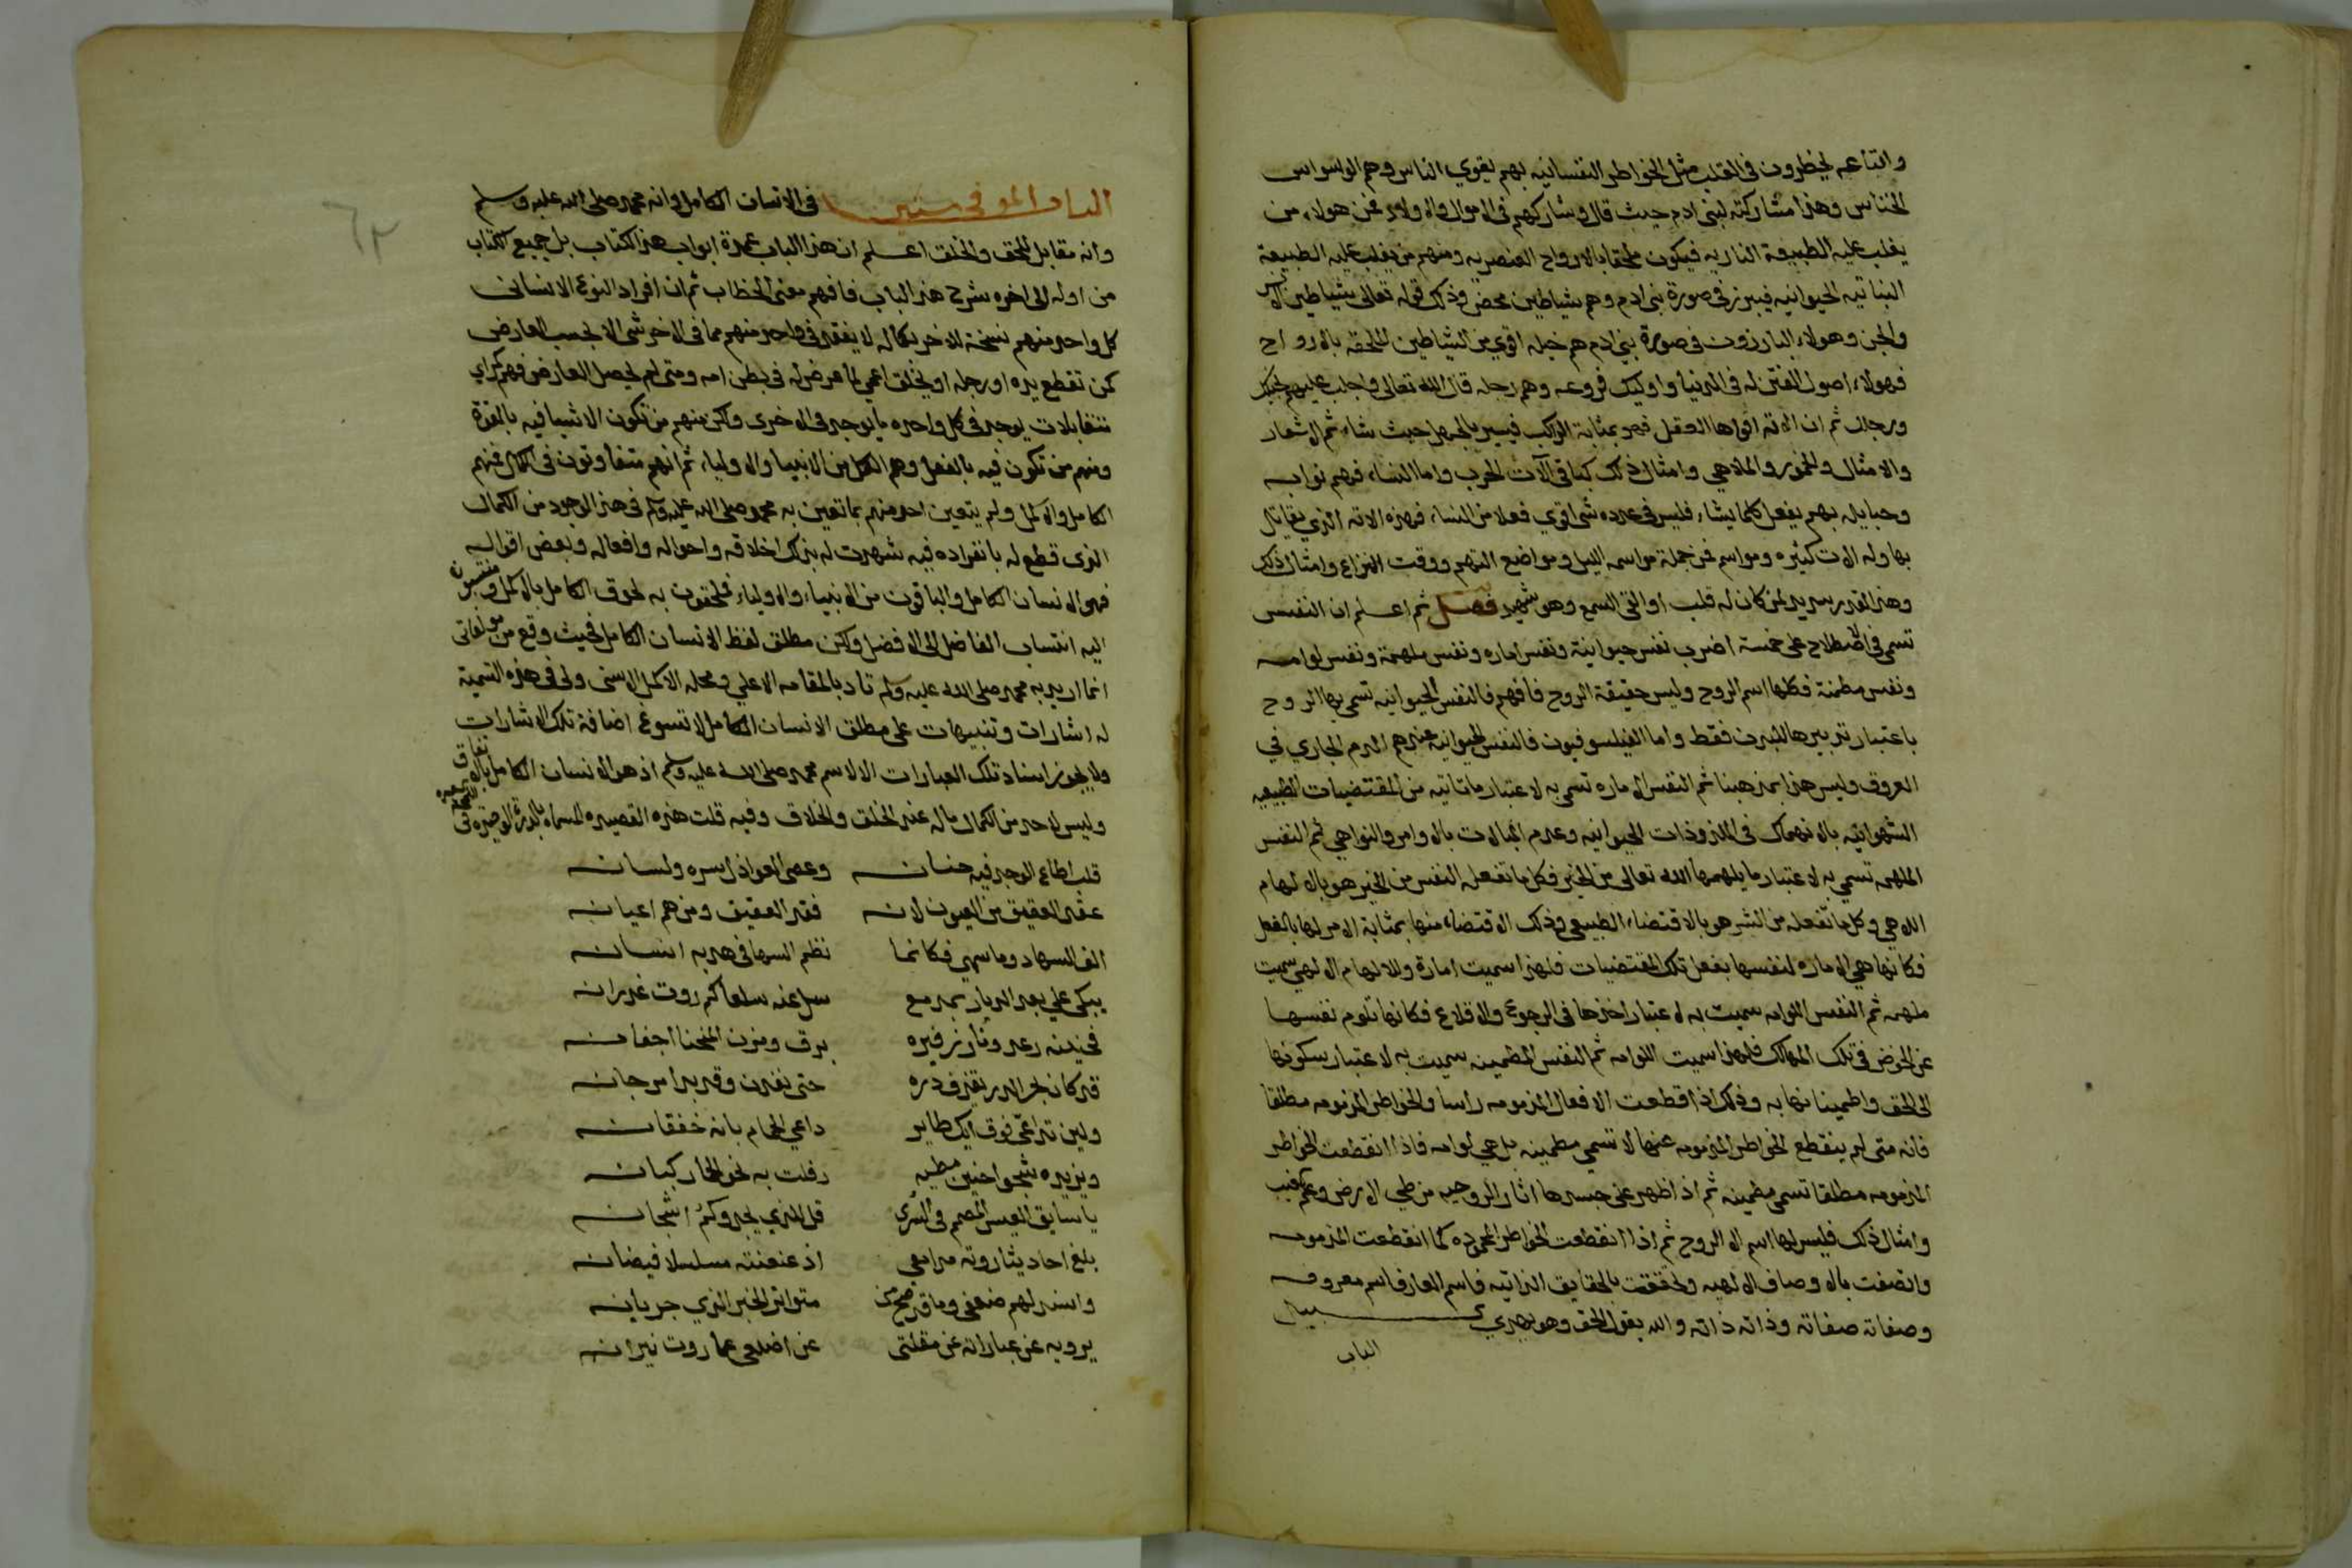 والقاعه يخطرون في القلب مثل الخواطر النفسانيه بهم يغوي الناس وهم الوسواس
الخناس وهذا مشاركته لبني ادم حيث قال وشاركهم في الاموال والاولاد فمن هولاء من
يغلب عليه الطبيعة الناريه فيكون ملتحقا بالارواح العنصريه ومنهم من يغلب عليه الطبيعة
النباتيه الحيوانيه فيبرز في صورة بني ادم وهم شياطين محض وذلك قوله تعالى شياطين الانس
والجن وهولاء البارزون في صورة بني ادم هم خيله اقوي من الشياطين الملتحقه بالارواح
فهولاء اصول الفتن له في الدنيا واوليك فروعه وهم رجله قال الله تعالى واجلب عليهم بخيلك
ورجلك ثم ان الاته اقواها الغفله فهو بمثابة الراكب فيسير بالجهل حيث شاء ثم الاشعار
والامثال والخمور والملاهي وامثال ذلك كباقي آلات الحرب واما النساء فهم نوابه
وحبايله بهم يفعل كلما يشاء فليس في عدده شي اقوي فعلا من النساء فهذه الاته الذي يقاتل
بها وله الات كثيره ومواسم فمن جملة مواسمه الليل ومواضع التهم ووقت النزاع وامثال ذلك
وهذا القدر سديد لمن كان له قلب او القي السمع وهو شهيد فصل ثم اعلم ان النفس
تسمى في الاصطلاح على خمسة اضرب نفس حيوانية ونفس اماره ونفس ملهمة ونفس لوامه
ونفس مطمنة فكلها اسم الروح وليس حقيقة الروح فافهم فالنفس الحيوانيه تسمى بها الروح
باعتبار تدبيرها للبدن فقط واما الفيلسوفيون فالنفس الحيوانيه عندهم الدم الجاري في
العروق وليس هذا بمذهبنا ثم النفس الاماره تسمى به لاعتبار ماتاتيه من المقتضيات الطبيعيه
الشهوانيه بالانهماك في الملذوذات الحيوانيه وعدم المبالات بالاوامر والنواهي ثم النفس
الملهمه تسمي به لاعتبار ما يلهمها الله تعالى من الخير فكل ما تفعله النفس من الخير هو بالالهام
الالاهي وكل ما تفعله من الشر هو بالاقتضاء الطبيعي وذلك الاقتضاء منها بمثابة الامر لها بالفعل
فكانها هي الاماره لنفسها بفعل تلك المقتضيات فلهذا سميت امارة وللالهام الالهي سميت
ملهمه ثم النفس اللوامه سميت به لاعتبار اخذها في الرجوع والاقلاع فكانها تلوم نفسها
عن الخوض في تلك المهالك فلهذا سميت اللوامه ثم النفس المطمينه سميت به لاعتبار سكونها
الى الحق واطمينانها به وذلك اذا قطعت الافعال المذمومه راسا والخواطر المذمومه مطلقا
فانه متى لم ينقطع الخواطر المذمومه عنها لا تسمى مطمينه بل هي لوامه فاذا انقطعت الخواطر
المذمومه مطلقا تسمى مطمينه ثم اذا ظهر على جسدها اثار الروحيه من طي الارض وعلم الغيب
وامثال ذلك فليس لها اسم الا الروح ثم اذا انقطعت الخواطر المحموده كما انقطعت المذمومه
واتصفت بالاوصاف الالهيه وتحققت بالحقايق الذاتيه فاسم العارف اسم معروفه
وصفاته صفاته وذاته ذاته والله يقول الحق وهو يهدي السبيل
الباب
٦٣
الباب الموفي ستين في الانسان الكامل وانه محمد صلى الله عليه وسلم
وانه مقابل للحق والخلق اعلم ان هذا الباب عمدة ابواب هذا الكتاب بل جميع الكتاب
من اوله الى اخره شرح هذا الباب فافهم معنى الخطاب ثم ان افراد النوع الانسانى
كل واحد منهم نسخة للاخر بكماله لا يفقد في واحد منهم مما في الاخر شي الا بحسب العارض
كمن تقطع يده او رجله او يخلق اعمي لما عرض له في بطن امه ومتى لم يحصل العارض فهم كمراى
متقابلات يوجد في كل واحده ما يوجد في الاخرى ولكن منهم من تكون الاشيا فيه بالقوة
ومنهم من تكون فيه بالفعل وهم الكمل من الانبياء والاولياء ثم انهم متفاوتون في الكمال فمنهم
الكامل والاكمل ولم يتعين احد منهم بما تعين به محمد صلى الله عليه وسلم في هذا الوجود من الكمال
الذى قطع له بانفراده فيه شهدت له بذلك اخلاقه واحواله وافعاله وبعض اقواله
فهو الانسان الكامل والباقون من الانبياء والاولياء ملحقون به لحوق الكامل بالاكمل ومنتسبون
اليه انتساب الفاضل الى الافضل ولكن مطلق لفظ الانسان الكامل فحيث وقع من مولفاتى
انما اريد به محمد صلى الله عليه وسلم تادبا لمقامه الاعلي ومحله الاكمل الاسنى ولى في هذه التسمية
له اشارات وتنبيهات على مطلق الانسان الكامل لا تسوغ اضافة تلك الاشارات
ولا يجوز اسناد تلك العبارات الا لاسم محمد صلى الله عليه وسلم اذ هو الانسان الكامل بالاتفاق
وليس لاحد من الكمال ماله عند الخلق والخلاق وفيه قلت هذه القصيده المسماه بالدرة الوحيده في
قلب اطاع الوجد فيه جنانه وعصى العواذل سره ولسانه
عقد العقيق من العيون لانه فقد العقيق ومن هم اعيانه
الف السهاد وما سهى فكانما نظم السها في هدبه انسانه
يبكى على بعد الديار بمدمع سل عنه سلعا كم روت غدرانه
فحنينه رعد ونار زفيره برق ومزن المنحنا اجفانه
قد كان بحر الدر يقذف دره حتى نفدن وقد بدا مرجانه
ولين تداعى فوق ايك طاير داعي الحمام بانه خفقانه
ويزيده شجوا حنين مطيه رفلت به نحو الحما ركبانه
يا سايق العيس المعمم في السرى قل للذي يحدو كم اشجانه
بلغ احاديثا روته مدامعي اذ عنعنته مسلسلا فيضانه
واسند لهم ضعفى وما قد صح من متواتر الخبر الذي جريانه
يرويه عن عبراته عن مقلتى عن اضلعى عما روت نيرانه